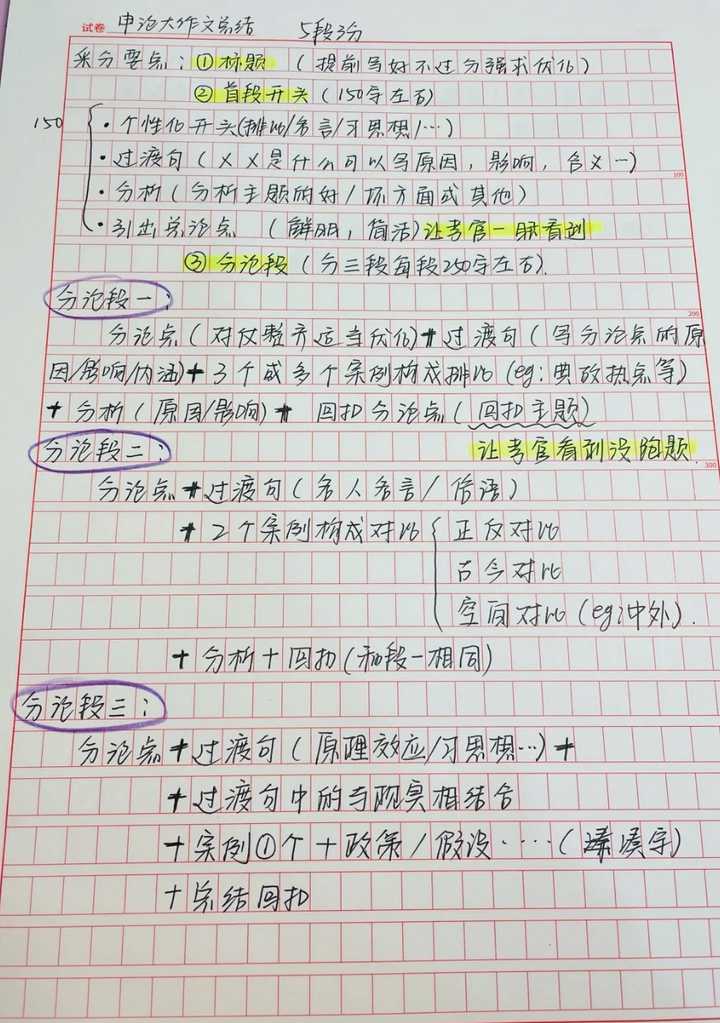 试卷 申论大作文总结 5段3分
采分要点：①标题（提前写好不过分强求优化）
②首段开头（150字左右）
150
·个性化开头(排比/名言/习思想/…)
·过渡句（××是什么可以写原因，影响，含义…)
·分析（分析主题的好/坏方面或其他）
·引出总论点（鲜明，简洁)让考官一眼看到
100
③分论段（分三段每段250字左右).
分论段一：
200
分论点（对仗整齐适当优化)+过渡句（写分论点的原
因/影响/内涵)+3个或多个案例构成排比(eg:典故热点等)
+分析（原因/影响）+回扣分论点（回扣主题）
分论段二：
让考官看到没跑题.
300
分论点+过渡句（名人名言/俗语）
+2个案例构成对比{正反对比
古今对比
空间对比(eg:中外).
+分析+回扣(和段一相同)
分论段三：
分论点+过渡句（原理效应/习思想…)+
+过渡句中的与现实相结合
+案例①个+政策/假设····(凑字)
+总结回扣